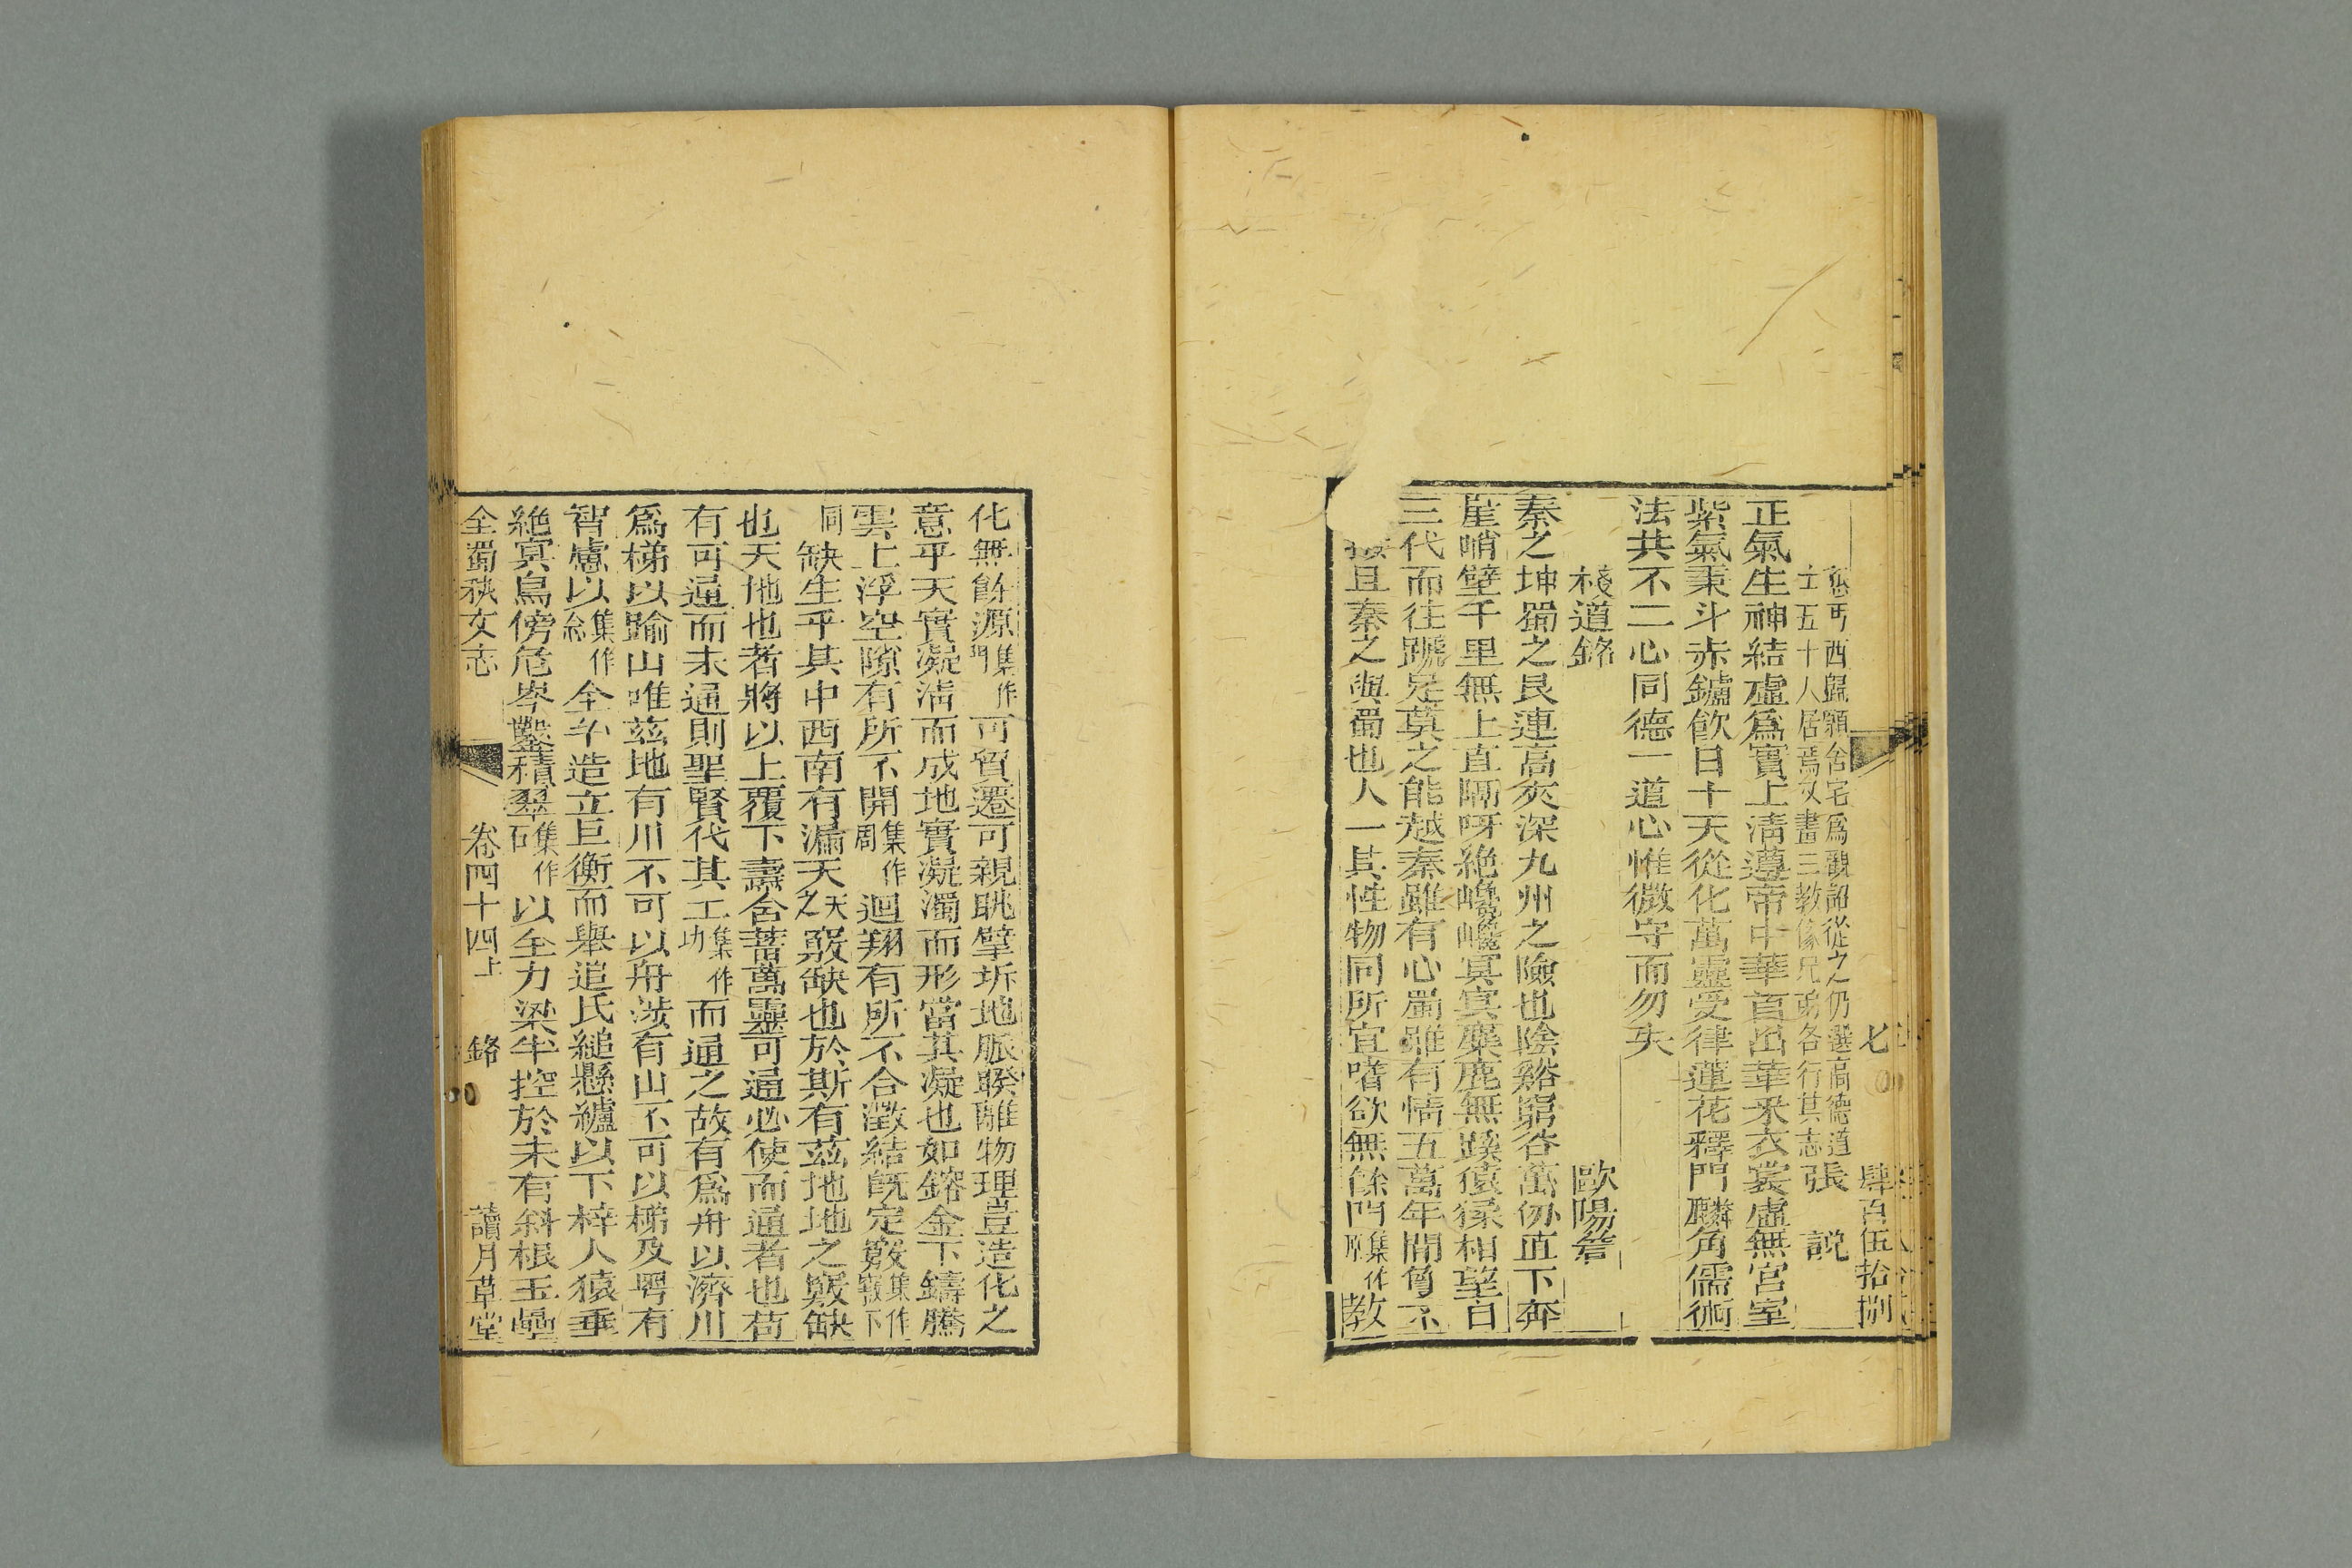 七 肆百伍拾捌
丐西歸願舍宅爲觀詔從之仍選高德道
士五十人居焉又畫三教像兄弟各行其志 張 說
正氣生神結虛爲實上清遵帝中華首出華釆衣裳虛無宮室
紫氣乘斗赤鑪飲日十天從化萬靈受律蓮花釋門麟角儒術
法共不二心同德一道心惟微守而勿失
棧道銘 歐陽詹
秦之坤蜀之艮連高夾深九州之險也陰谿窮谷萬仞直下奔
崖峭壁千里無上直隔呀絶巉巉冥冥麋鹿無蹊猿猱相望自
三代而往蹏足莫之能越秦雖有心蜀雖有情五萬年間夐不
且秦之與蜀也人一其性物同所宜嗜欲無餘門集作原教
化無餘源集作門可貿遷可親眺擘坼地脈睽離物理豈造化之
意乎天實凝清而成地實凝濁而形當其凝也如鎔金下鑄騰
雲上浮空隙有所不開集作周迴翔有所不合澂結旣定竅集作竅下
同缺生乎其中西南有漏天天之竅缺也於斯有茲地地之竅缺
也天地也者將以上覆下燾含蓄萬靈可通必使而通者也苟
有可通而未通則聖賢代其工集作功而通之故有爲舟以濟川
爲梯以踰山唯茲地有川不可以舟涉有山不可以梯及粤有
智慮以集作給全斗造立巨衡而舉追氏縋懸纑以下梓人猿垂
絶冥鳥傍危岑鑿積翠集作石以全力梁半控於未有斜根玉壘
全蜀秇文志 卷四十四上 銘 讀月草堂